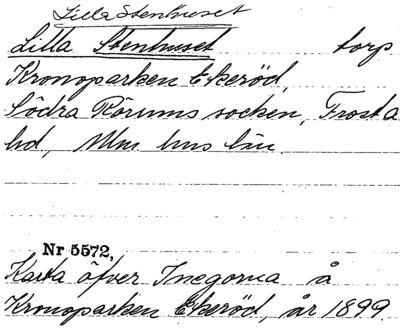 Lilla Stenhuset
Lilla Stenhuset torp
Kronoparken Ekeröd,
Södra Rörums socken, Frosta
hd, Mlm hus län.
Nr 5572,
Karta öfver Inegorna å
Kronoparken Ekeröd, år 1899.